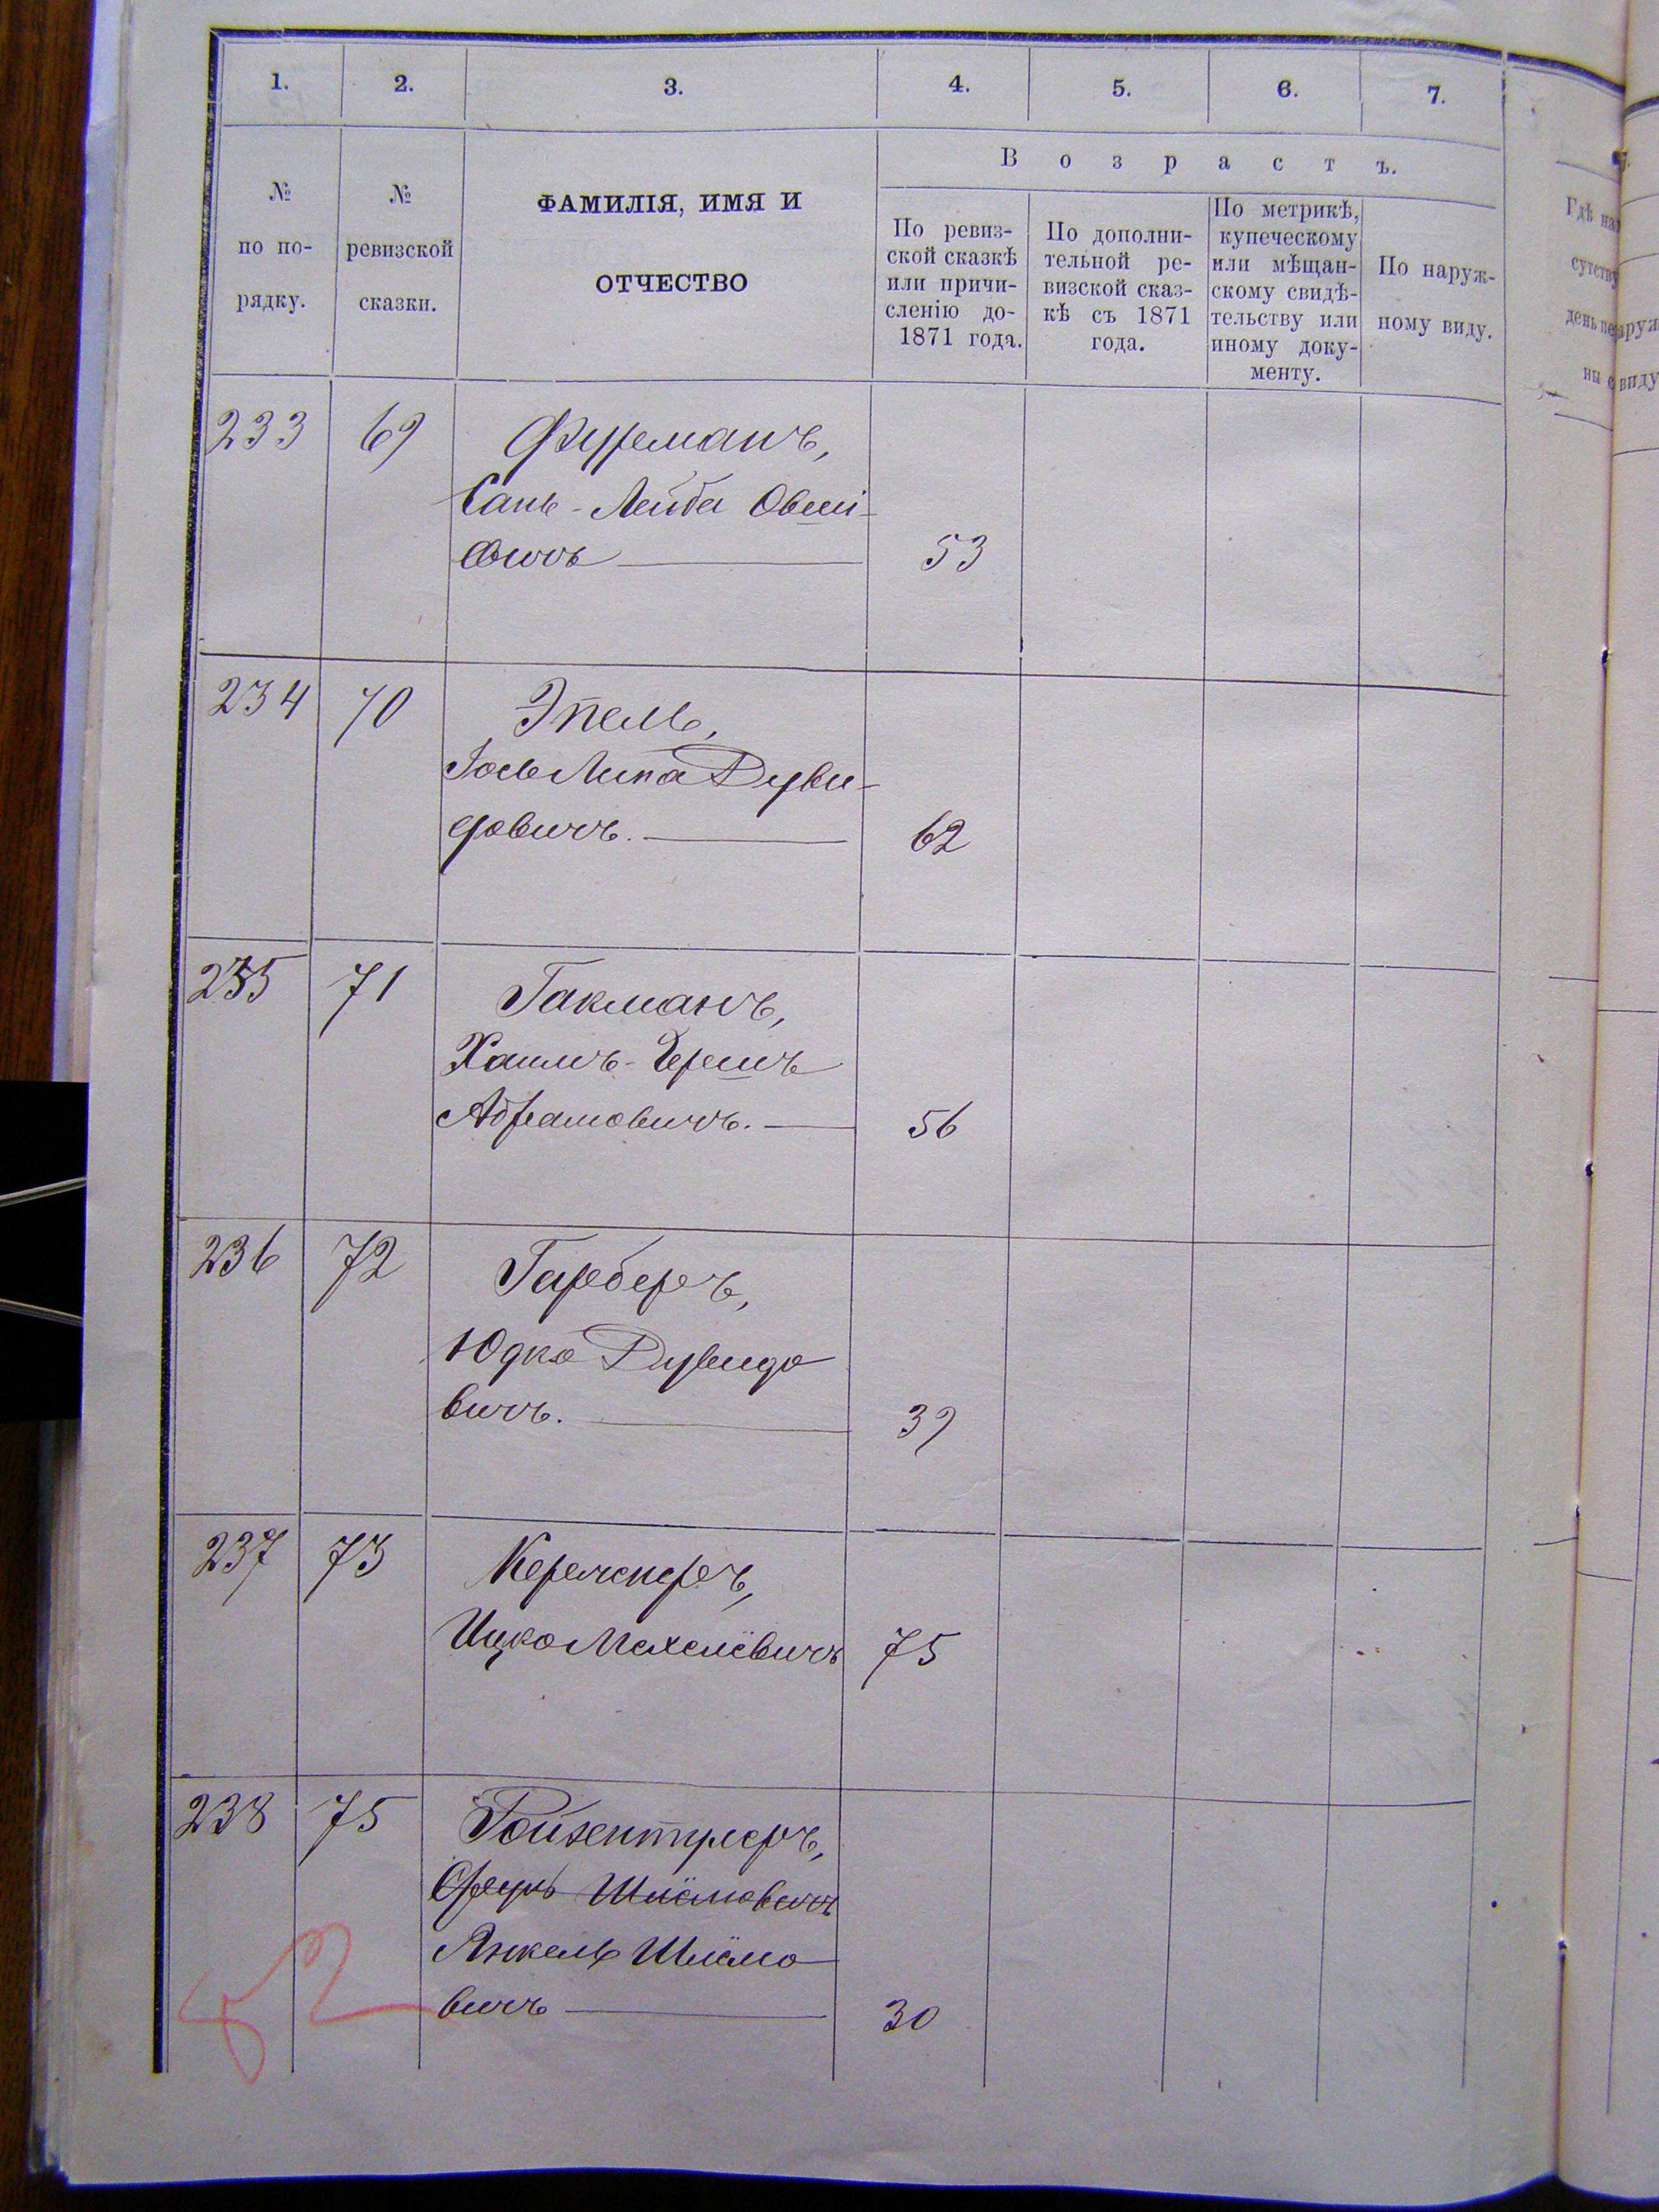 1. 2. 3. 4. 5. 6. 7.
№ по по-рядку.
№ ревизской сказки.
ФАМИЛІЯ, ИМЯ И
ОТЧЕСТВО
Возрастъ.
По ревиз-
ской сказкѣ
или причи-
сленію до-
1871 года.
По дополни-
тельной ре-
визской сказ-
кѣ съ 1871
года.
По метрикѣ,
купеческому
или мѣщан-
скому свидѣ-
тельству или
иному доку-
менту.
По наруж-
ному виду.
233 69 Фурманъ,
Лейба Овші-
овичъ 53
234 70 Эпель,
Іось Липа Дуви-
довичъ. 62
235 71 Гакманъ,
Хаимъ-Гершъ
Абрамовичъ. 56
236 72 Гарберъ,
Юдко Дувидо
вичъ. 39
237 73
Ицко Мехелёвичъ 75
238 75
Шлёмовичъ
Янкель Шлёмо
вичъ 30
52